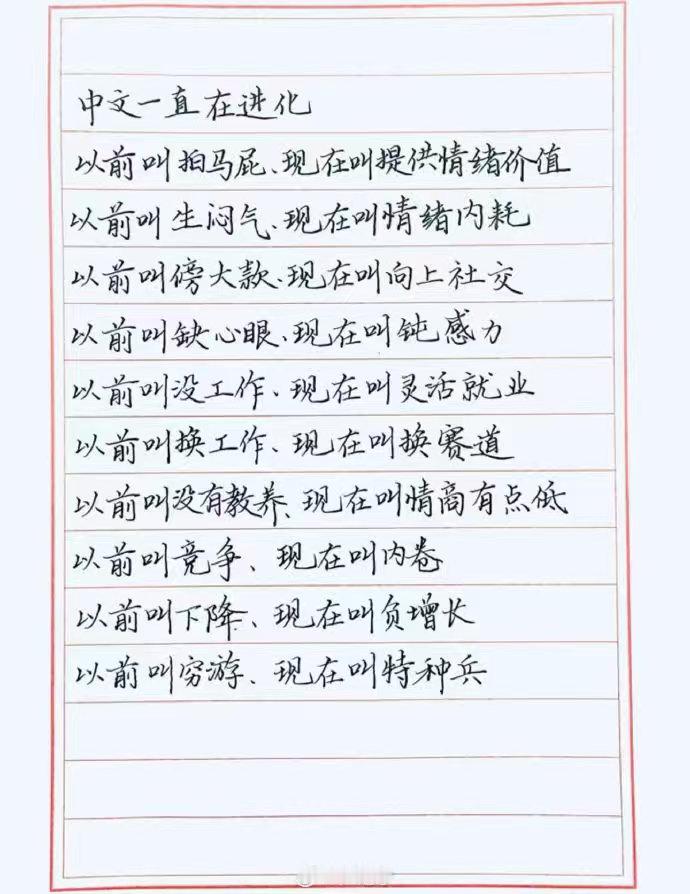 中文一直在进化
以前叫拍马屁、现在叫提供情绪价值
以前叫生闷气、现在叫情绪内耗
以前叫傍大款、现在叫向上社交
以前叫缺心眼、现在叫钝感力
以前叫没工作、现在叫灵活就业
以前叫换工作、现在叫换赛道
以前叫没有教养、现在叫情商有点低
以前叫竞争、现在叫内卷
以前叫下降、现在叫负增长
以前叫穷游、现在叫特种兵